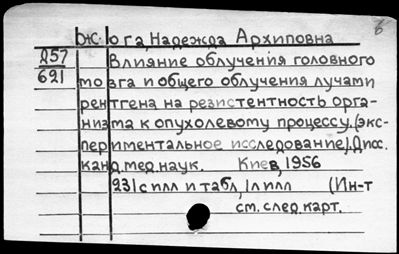 Жюга, Надежда Архиповна
Д57 Влияние облучения головного
691 мозга и общего облучения лучами
рентгена на резистентность орга-
низма к опухолевому процессу. (экс-
периментальное исследование). Дисс.
канд. мед. наук. Киев, 1956
231 с илл и табл, 1 л илл (Ин-т
см. след. карт.